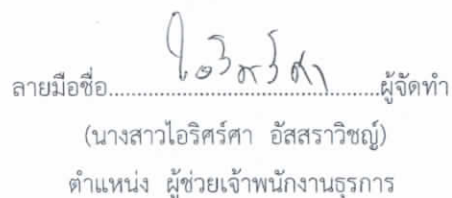 ลายมือชื่อ......ไอริศร์ศา......ผู้จัดทำ
(นางสาวไอริศร์ศา อัสสราวิชญ์)
ตำแหน่ง ผู้ช่วยเจ้าพนักงานธุรการ